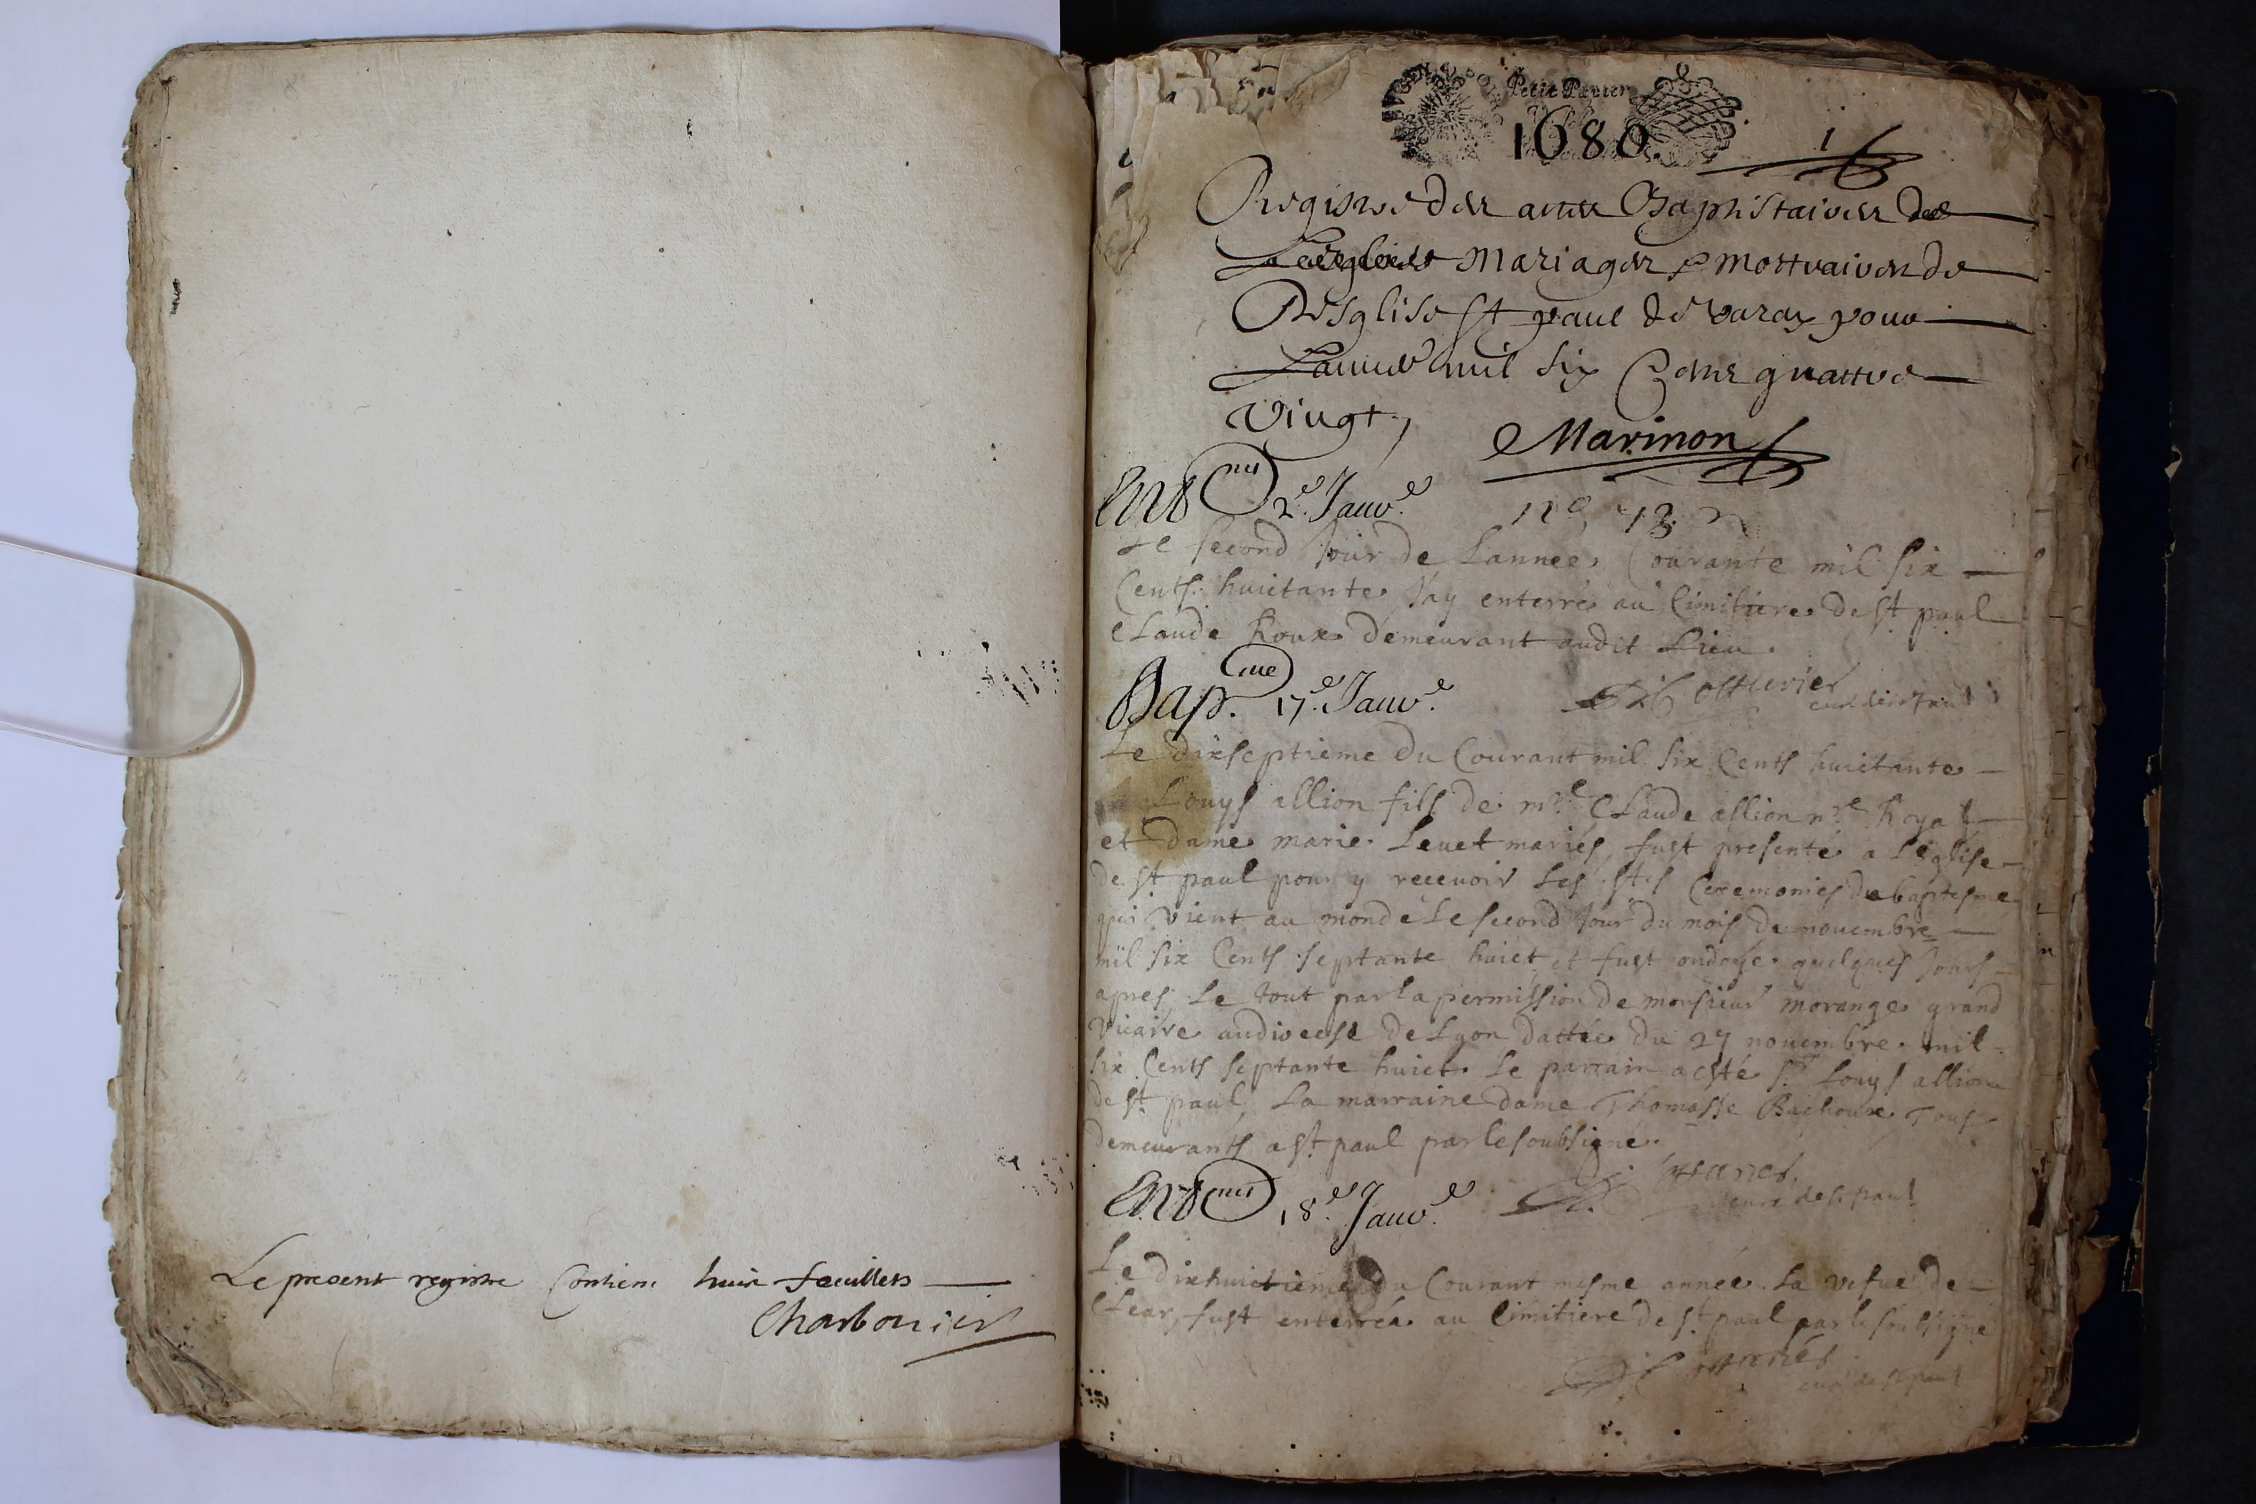 Le present registre Contient huit feuillets
Charbonier
Petit Papier
1680.
1
Registre des actes Baptistaires des
Mariages & mortuaires de
Lesglise St paul de varax pour
Lannee mil six Cens quattre
vingt,
Marinon
Entmnt 2e Janvr.
Le second jour de Lannee Courante mil six
Cents huictante Jay enterré au Cimitiere de st paul
Claude Roux demeurant audit Lieu.
Bapme. 17e. Janvr.
Le dixseptieme du Courant mil six Cents huictante
Louys allion fils de mre Claude allion nre Royal
et dame marie Levet mariés, fust presenté a Leglise
de st paul pour y recevoir Les sts Ceremonies de baptesme
qui vient au monde Le second jour du mois de novembre
mil six Cents septante huict et fust ondoyé quelques jours
apres, Le tout par la permission de monsieur morange grand
vicaire au diocese de Lyon dattée du 27 novembre mil
six Cents septante huict. Le parrain a esté sr Louys allion
de st paul, La marraine dame Thomasse Tous
demeurants a st paul par le soubsigné.
curé de st paul
Entmnt 18e. Janvr.
Le dixhuictieme du Courant mesme année La vefve de
Clear, fust enterrée au Cimitiere de st paul par le soubsigné
curé de st paul